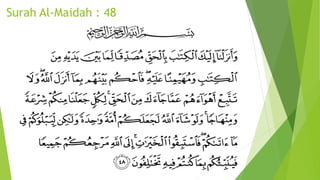 Surah Al-Maidah : 48
بِسْمِ اللَّهِ الرَّحْمَٰنِ الرَّحِيمِ
وَأَنزَلْنَا إِلَيْكَ الْكِتَابَ بِالْحَقِّ مُصَدِّقًا لِّمَا بَيْنَ يَدَيْهِ مِنَ
الْكِتَابِ وَمُهَيْمِنًا عَلَيْهِ ۖ فَاحْكُم بَيْنَهُم بِمَا أَنزَلَ اللَّهُ ۖ وَلَا
تَتَّبِعْ أَهْوَاءَهُمْ عَمَّا جَاءَكَ مِنَ الْحَقِّ ۚ لِكُلٍّ جَعَلْنَا مِنكُمْ شِرْعَةً
وَمِنْهَاجًا ۚ وَلَوْ شَاءَ اللَّهُ لَجَعَلَكُمْ أُمَّةً وَاحِدَةً وَلَٰكِن لِّيَبْلُوَكُمْ فِي
مَا آتَاكُمْ ۖ فَاسْتَبِقُوا الْخَيْرَاتِ ۚ إِلَى اللَّهِ مَرْجِعُكُمْ جَمِيعًا
فَيُنَبِّئُكُم بِمَا كُنتُمْ فِيهِ تَخْتَلِفُونَ ٤٨